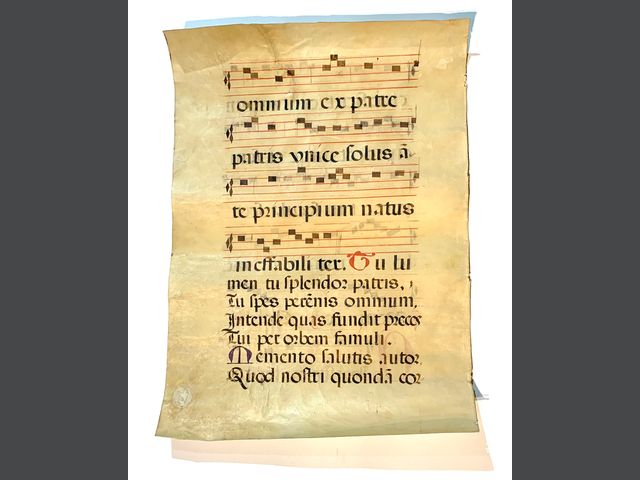 omnium ex patre
patris vnice solus ā
te principium natus
ineffabiliter. Tu lu
men tu splendor patris,
Tu spes perēnis omnium,
Intende quas fundit preces
Tui per orbem famuli.
Memento salutis autor
Quod nostri quondā cor